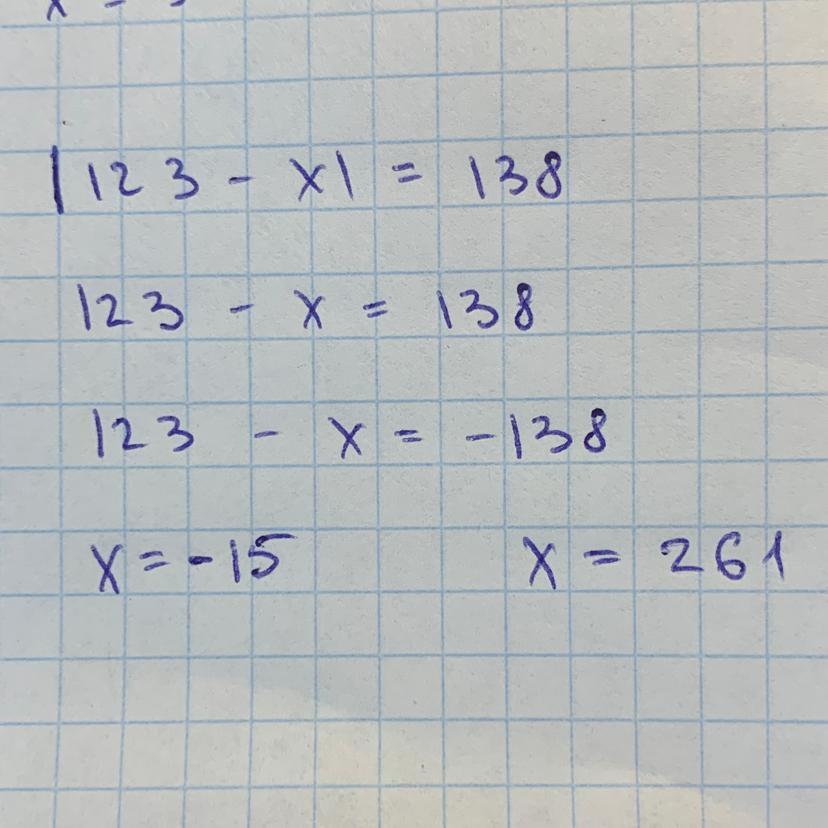 |123 - x| = 138
123 - x = 138
123 - x = -138
x = -15 x = 261